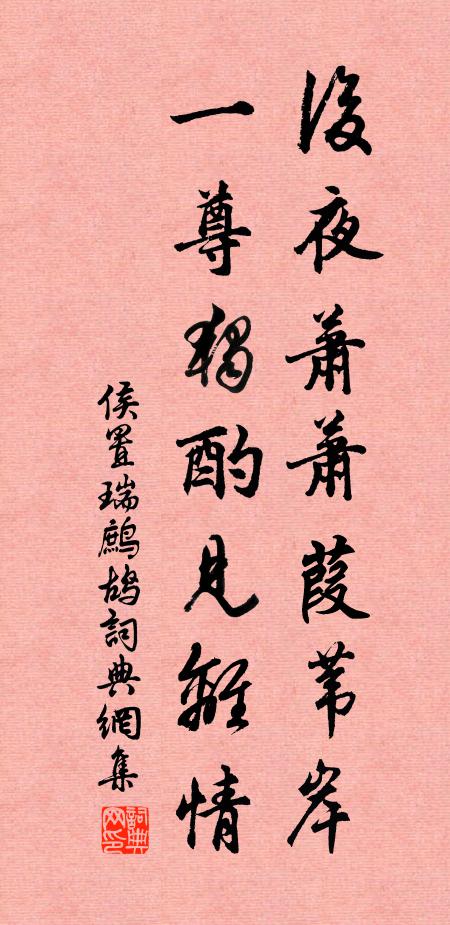 後夜蕭蕭葭葦岸
一尊獨酌見離情
侯置瑞鷓鴣詞典網集
詞典网印